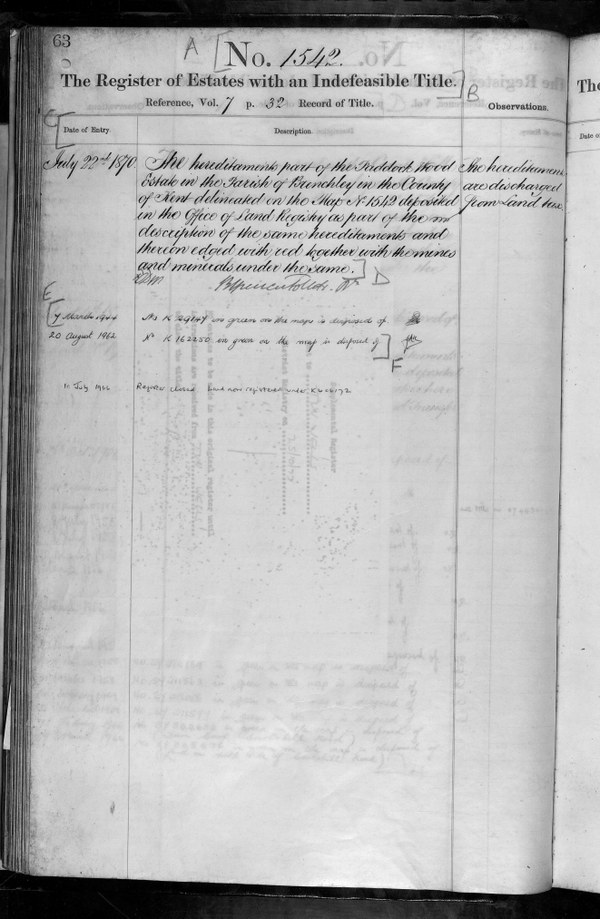 63
A [ No. 1542.
The Register of Estates with an Indefeasible Title. ]
Reference, Vol. 7 p. 32 Record of Title.
B
Observations.
C [
Date of Entry.
Description.
July 22nd 1870
The hereditaments part of the Riddock Wood
Estate in the Parish of Brenchley in the County
of Kent delineated on the Map No 1542 deposited
in the Office of Land Registry as part of the
description of the same hereditaments and
thereon edged with red together with the mines
and minerals under the same. ] D
The hereditaments
are discharged
from Land tax
E
[ 7 March 1944
No K on green on the map is disposed of
20 August 1962
No K 162250 on green on the map is disposed of ]
F
10 July
Register closed Land now registered under
The
Date o